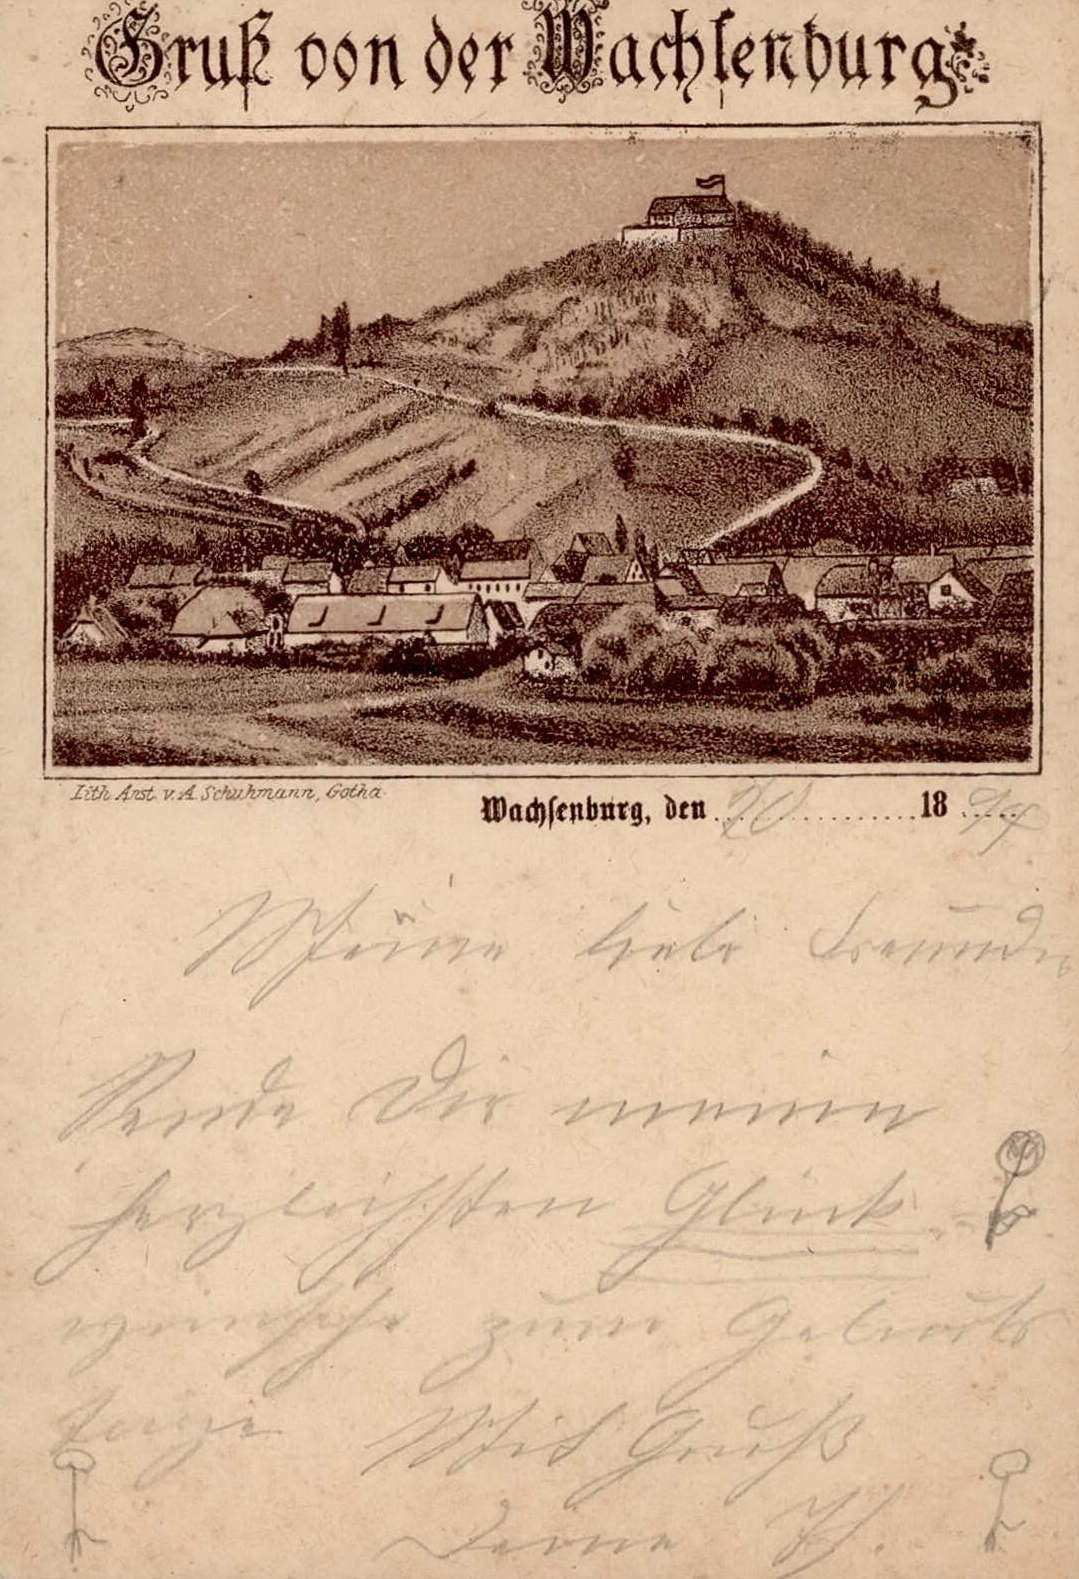 Gruß von der Wachsenburg
Lith. Anst. v. A. Schuhmann, Gotha.
Wachsenburg, den 18 94
Meine liebe Freundin
Sende Dir meinen
herzlichsten Glück-
wünsche zum Geburts
tage. Mit Gruß
Deine